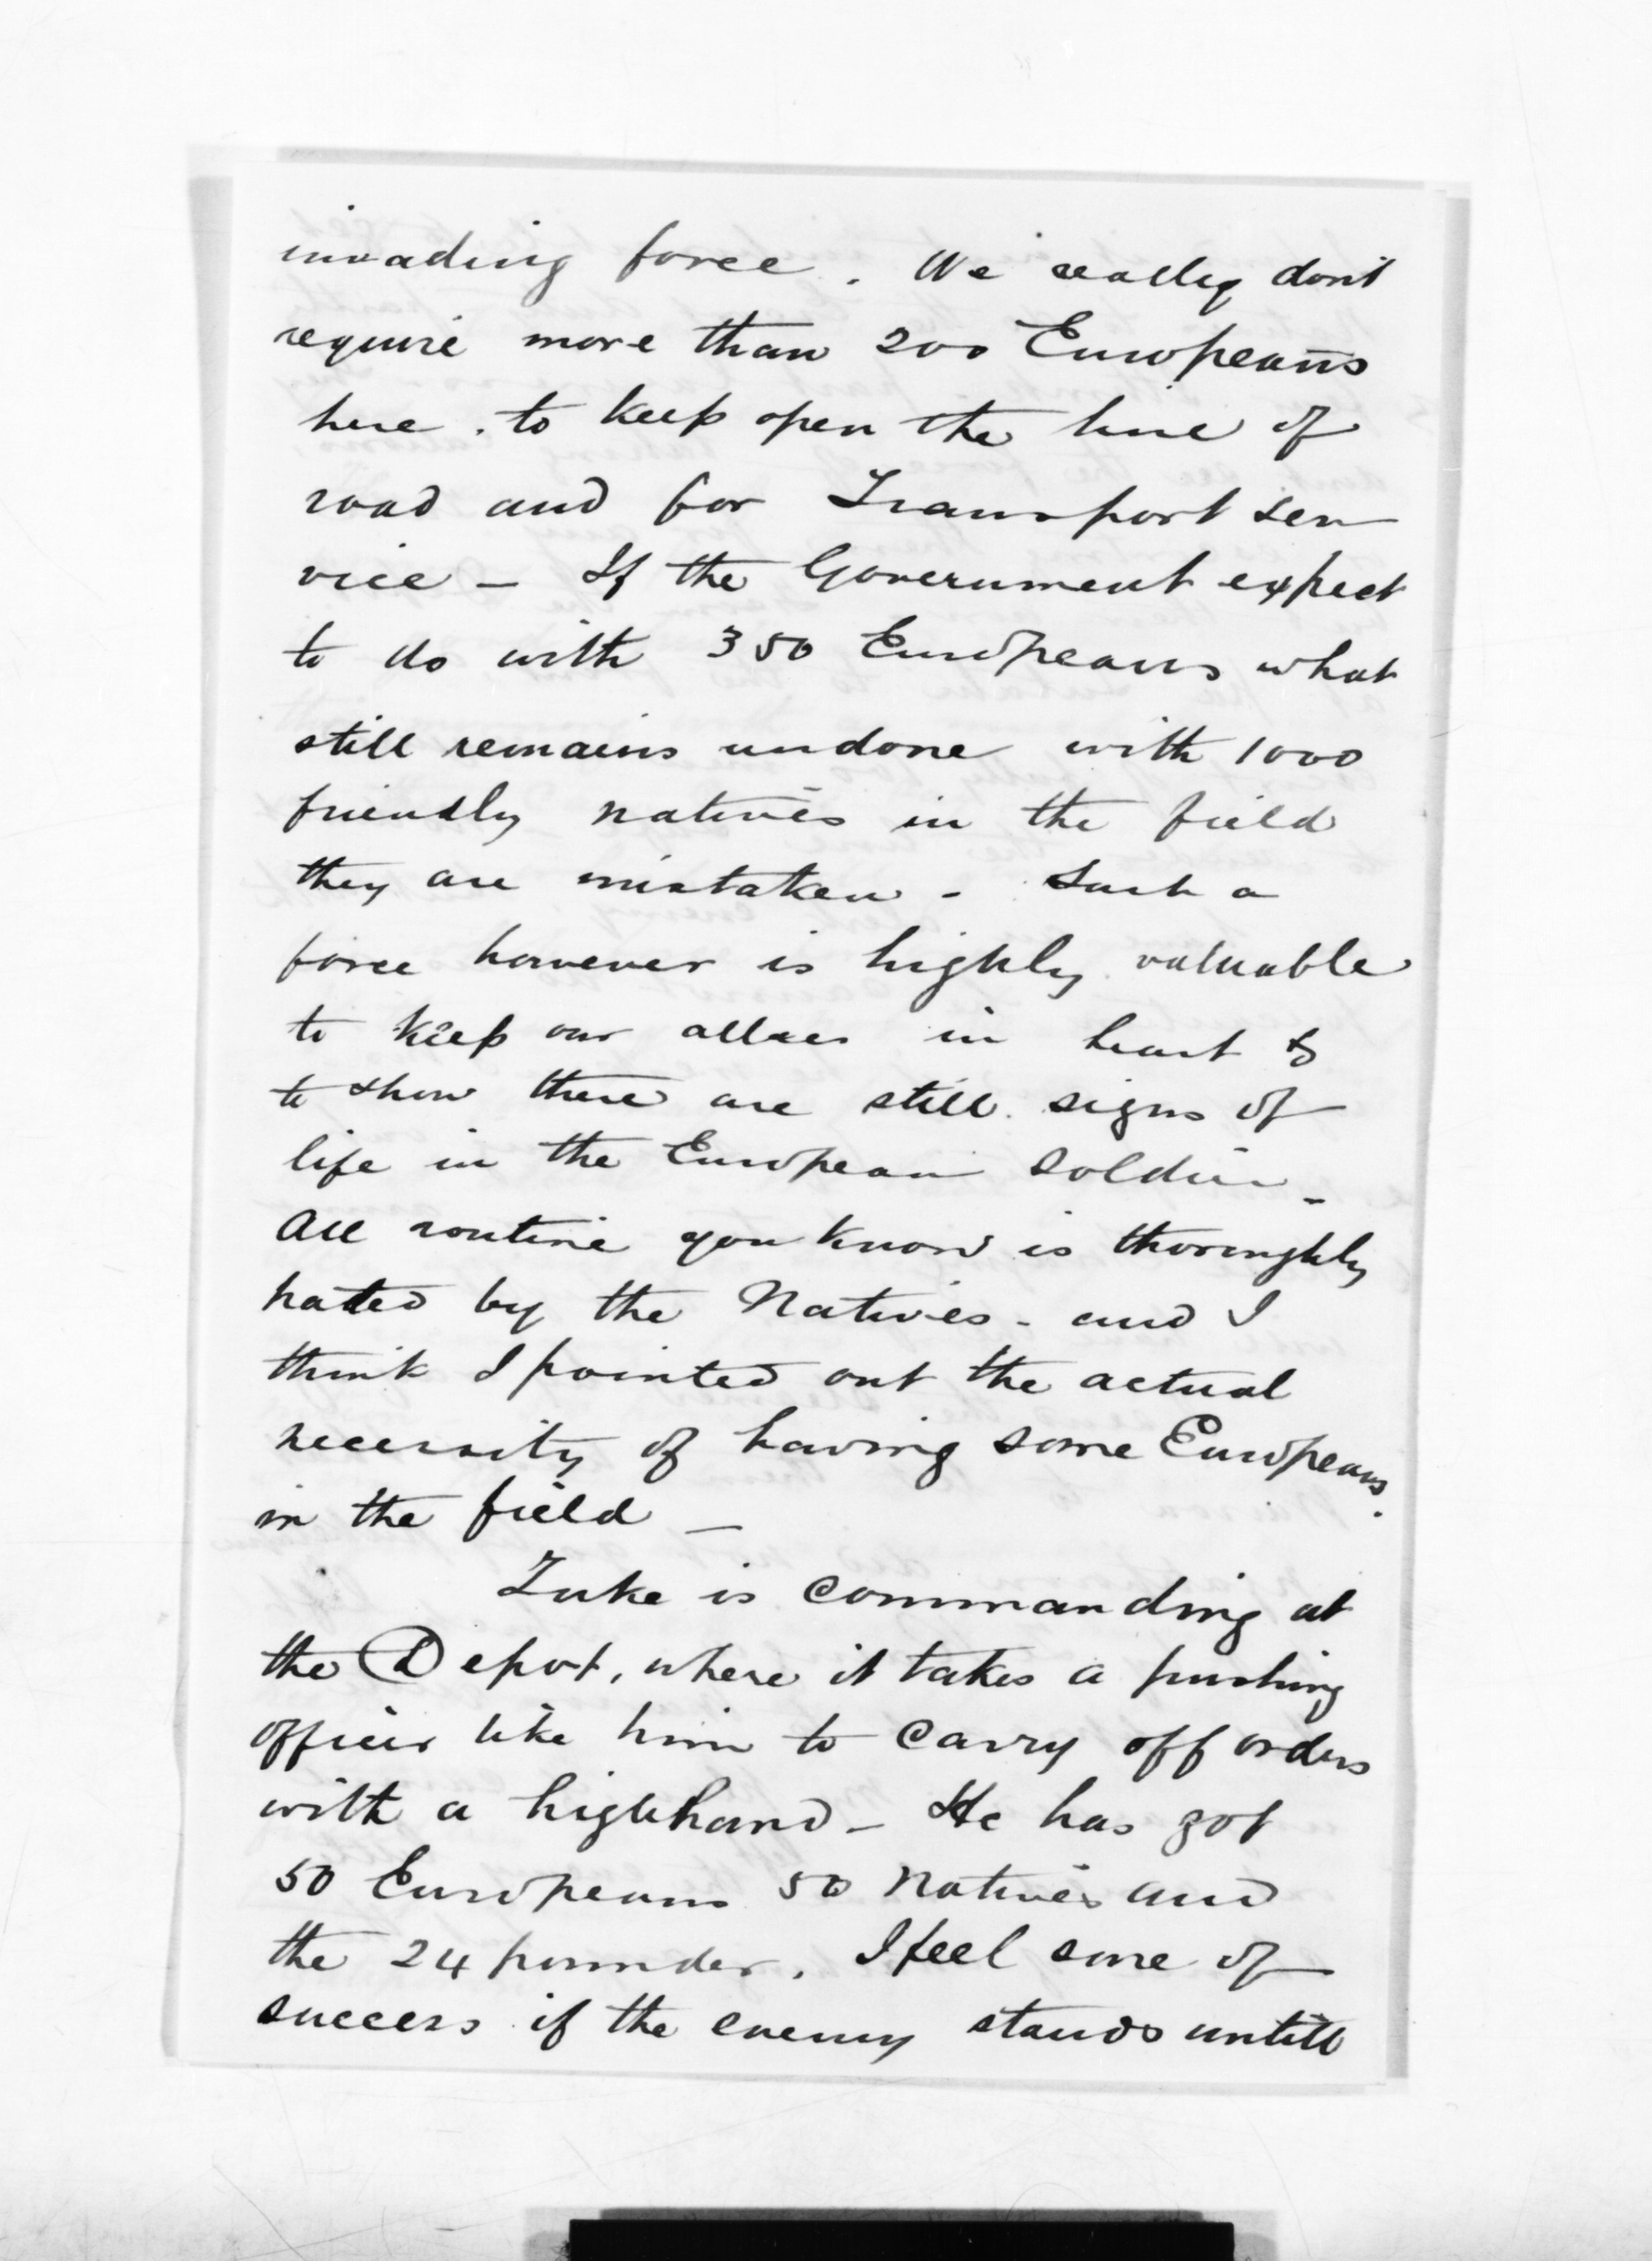 invading force. We really don't
require more than 200 Europeans
here. to keep open the line of
road and for Transport ser
vice - If the Government expect
to do with 350 Europeans what
still remains undone with 1000
friendly natives in the field
they are mistaken - Such a
force however is highly valuable
to keep our allies in heart &
to show there are still signs of
life in the European soldier -
All routine you know is thoroughly
hated by the Natives - and I
think I pointed out the actual
necessity of having some Europeans.
in the field -
Tuke is commanding at
the Depot, where it takes a pushing
officer like him to carry off orders
with a highhand - He has got
50 Europeans 50 Natives and
the 24 pounder. I feel sure of
success if the enemy stands untill